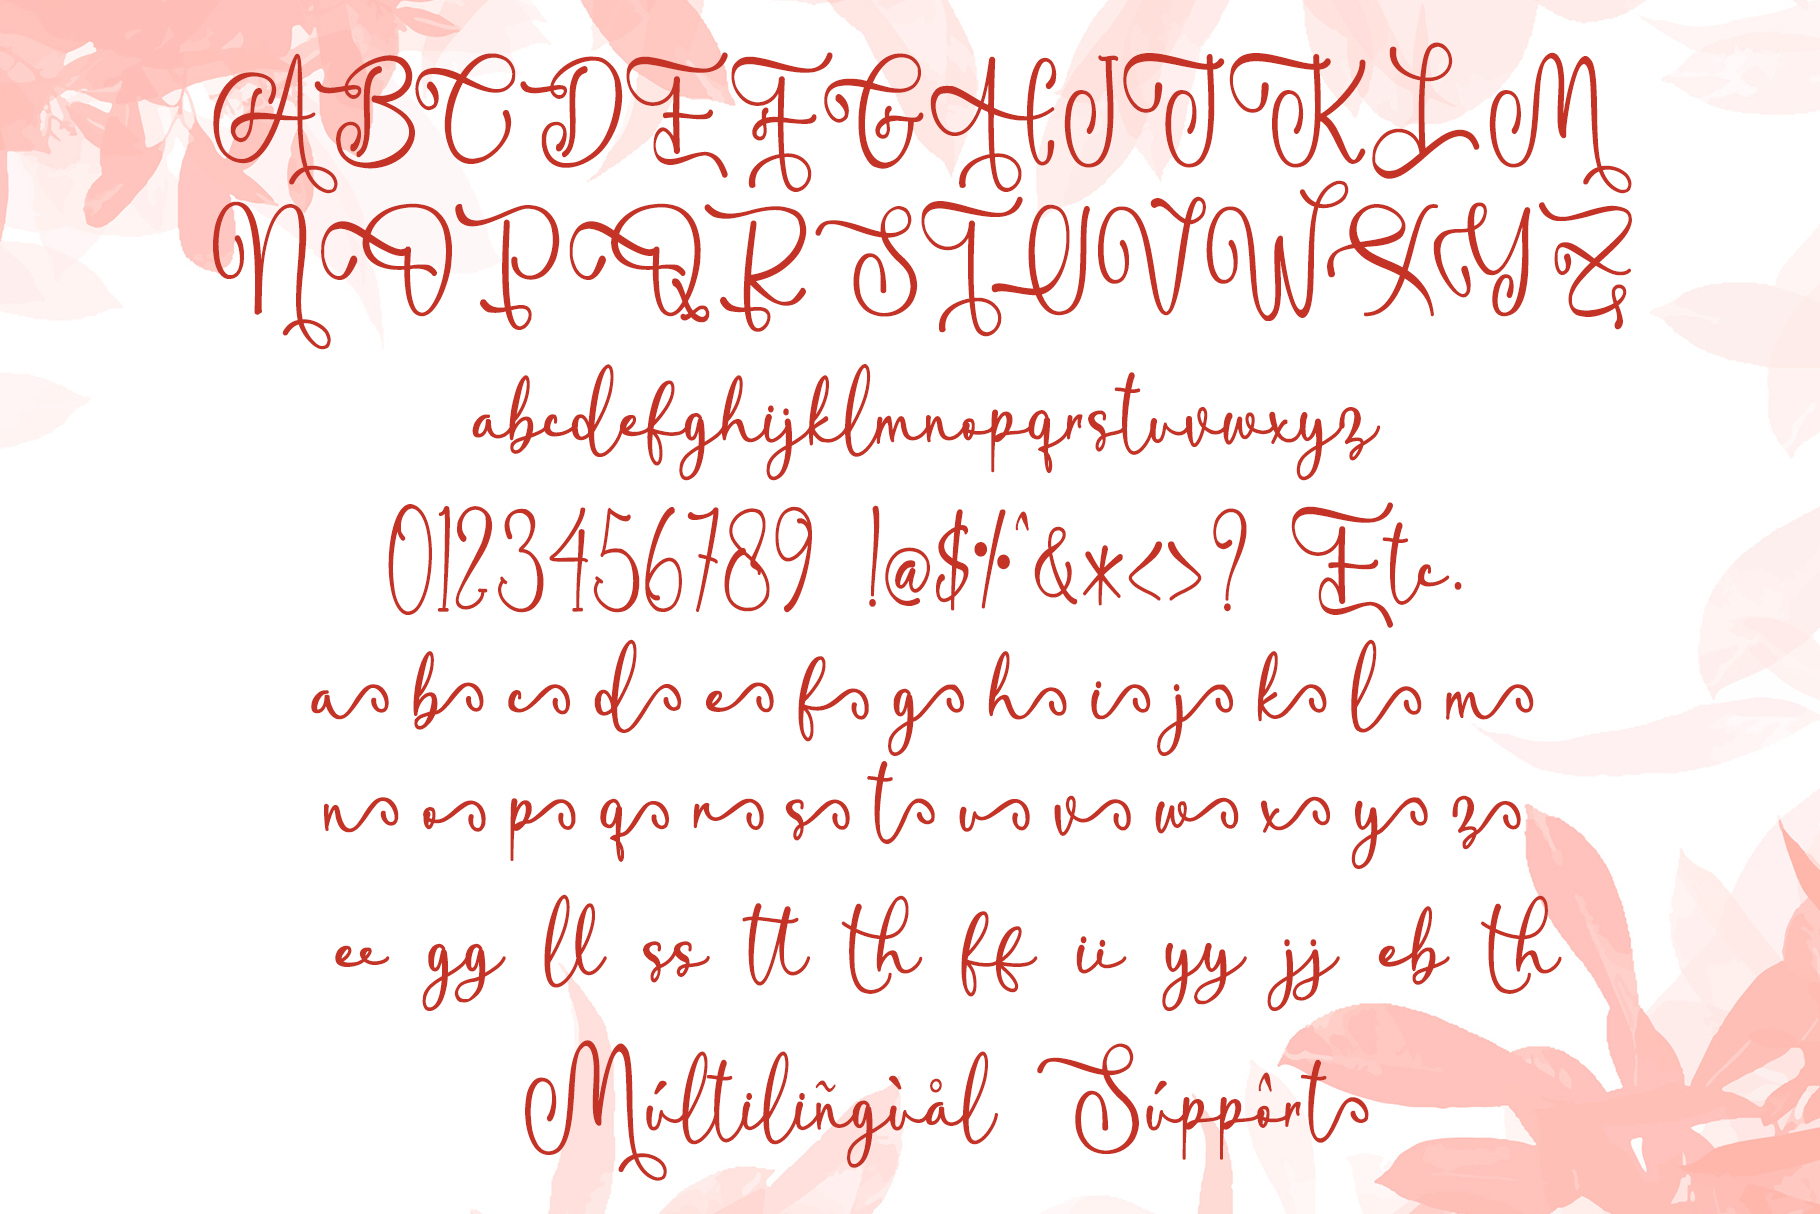 ABCDEFGHIJKLM
NOPQRSTUVWXYZ
abcdefghijklmnopqrstuvwxyz
0123456789 !@$%^&*<>? Etc.
a b c d e f g h i j k l m
n o p q r s t u v w x y z
ee gg ll ss tt th ff ii yy jj eb th
Múltiliñgùål Súppôrt